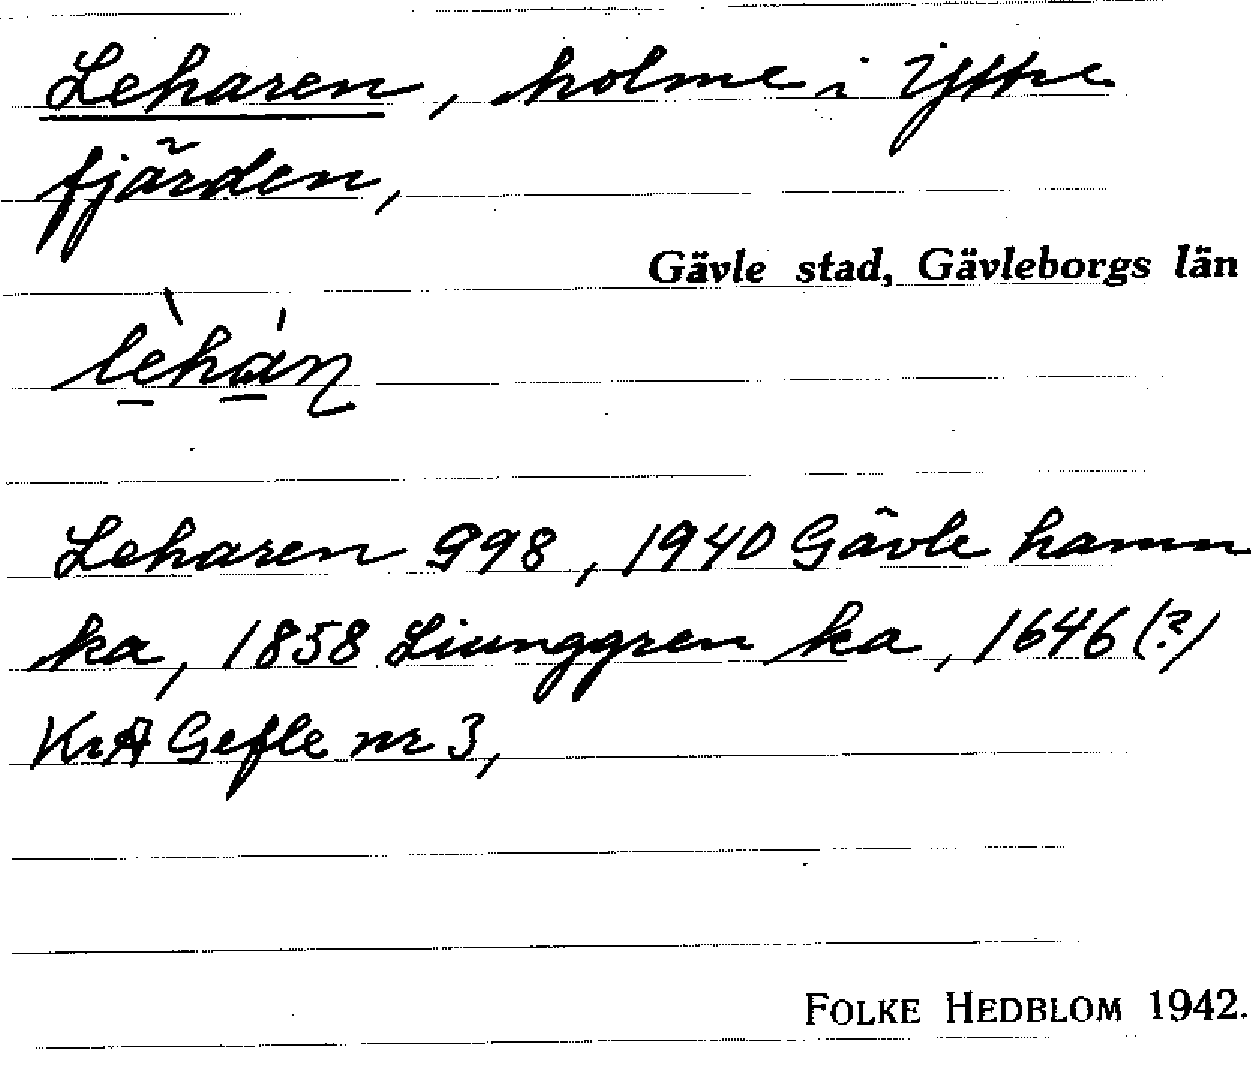 Leharen, holme i Yttre
fjärden,
Gävle stad, Gävleborgs län
lèhán
Leharen 998, 1940 Gävle hamn
ka, 1858 Liunggren ka, 1646 (?)
KrA Gefle nr 3,
FOLKE HEDBLOM 1942.